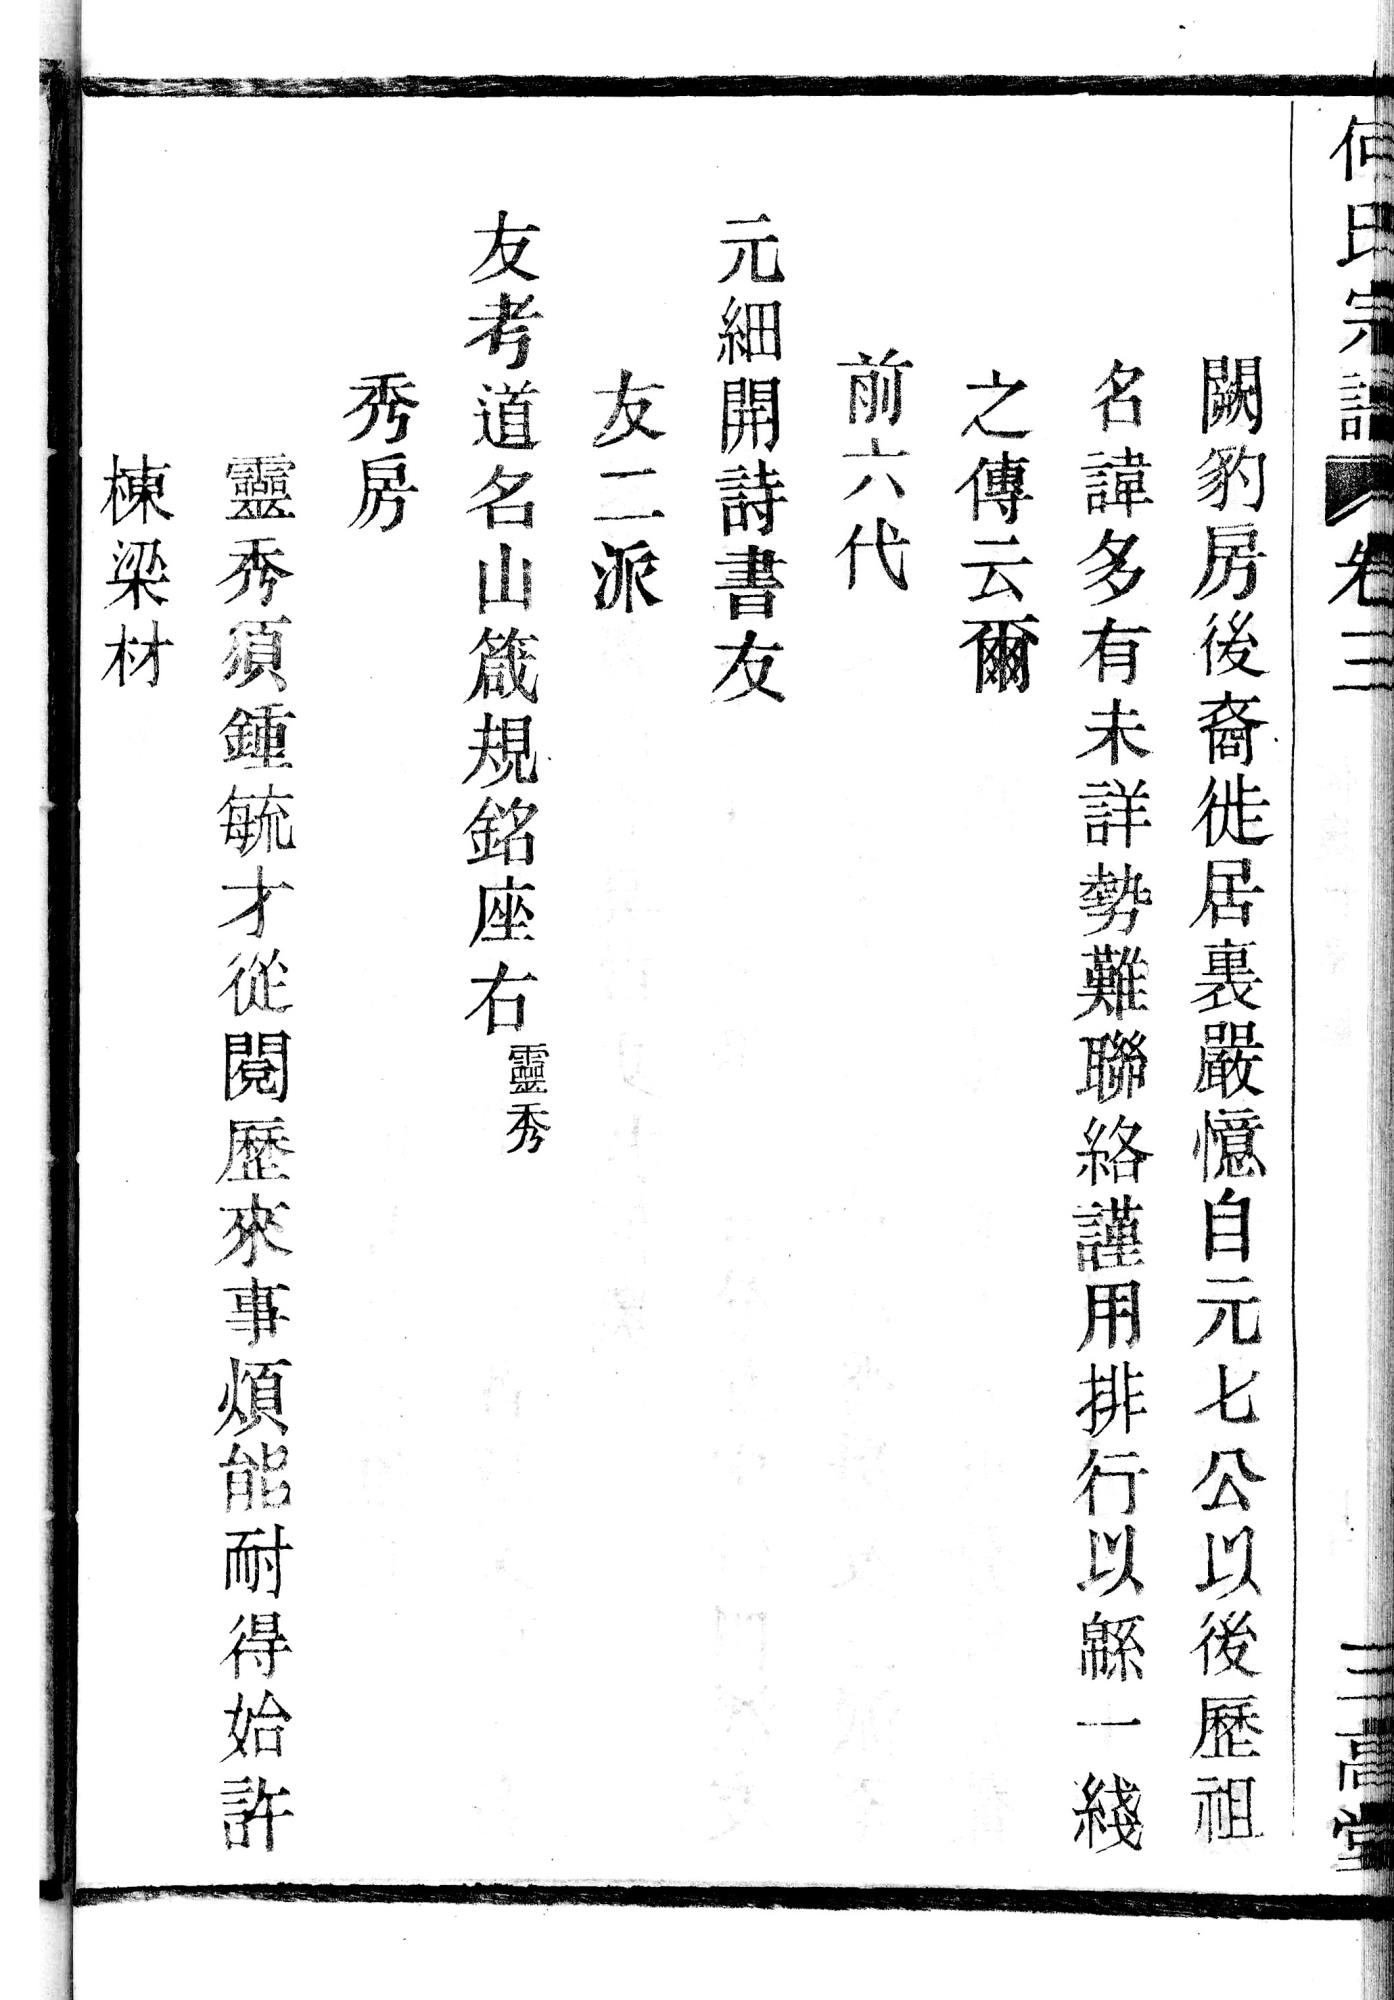 何氏宗譜
卷三
三高堂
闕豹房後裔徙居裏嚴憶自元七公以後歷祖
名諱多有未詳勢難聯絡謹用排行以緜一綫
之傳云爾
前六代
元細開詩書友
友二派
友考道名山箴規銘座右
靈秀
秀房
靈秀須鍾毓才從閱歷來事煩能耐得始許
棟梁材